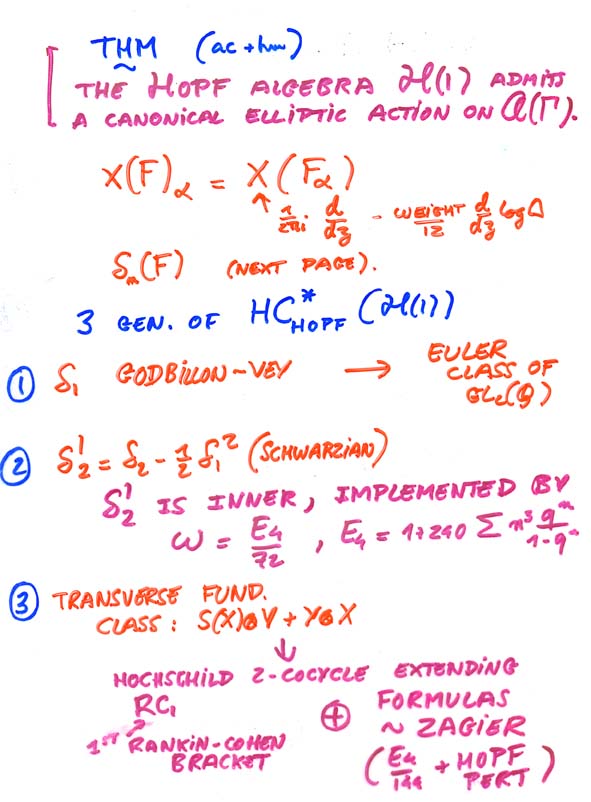 THM (ac + hm)
THE HOPF ALGEBRA ℋ(1) ADMITS
A CANONICAL ELLIPTIC ACTION ON 𝒜(Γ).
X(F)_α = X(F_α)
↑ 1/2πi d/dz - WEIGHT/12 d/dz log Δ
δ_n(F) (NEXT PAGE).
3 GEN. OF HC*_HOPF (ℋ(1))
① δ₁ GODBILLON-VEY → EULER CLASS OF GL₂(Q)
② δ₂' = δ₂ - 1/2 δ₁² (SCHWARZIAN)
δ₂' IS INNER, IMPLEMENTED BY
ω = E₄/72 , E₄ = 1+240 Σ n³ qⁿ/1-qⁿ
③ TRANSVERSE FUND.
CLASS : S(X)⊗Y + Y⊗X
↓
HOCHSCHILD 2-COCYCLE EXTENDING
RC₁ ⊕ FORMULAS
1ST RANKIN-COHEN BRACKET
~ ZAGIER
(E₄/144 + HOPF PERT)